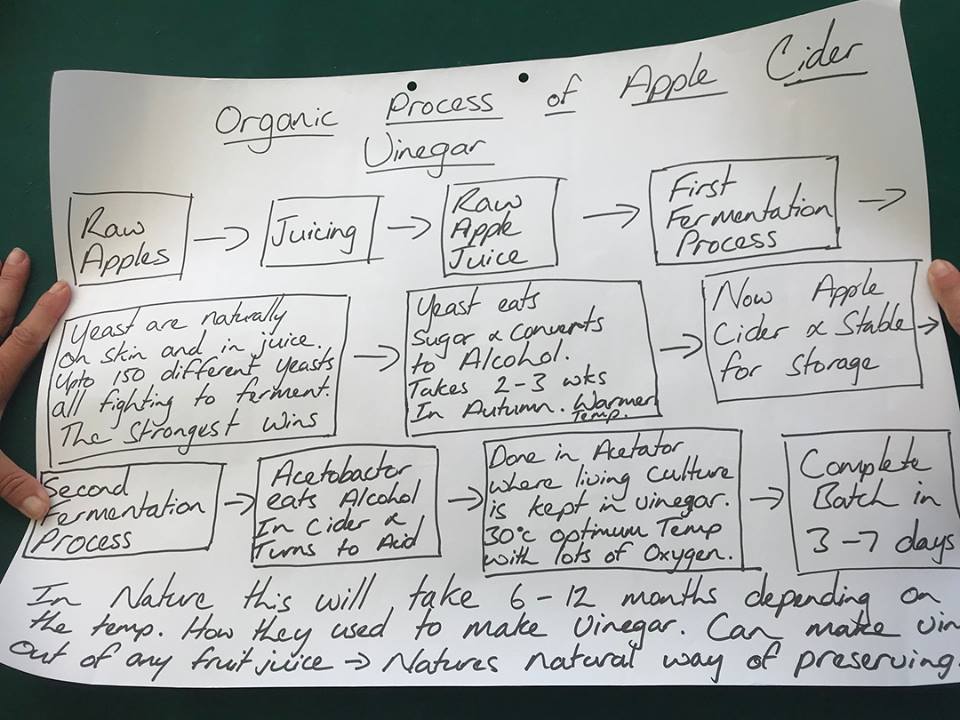 Organic Process of Apple Cider
Vinegar
Raw
Apples
→
Juicing
→
Raw
Apple
Juice
→
First
Fermentation
Process
→
Yeast are naturally
on skin and in juice.
Upto 150 different yeasts
all fighting to ferment.
The Strongest wins
→
Yeast eats
Sugar & converts
to Alcohol.
Takes 2-3 wks
In Autumn. Warmer
Temp.
→
Now Apple
Cider & Stable
for storage
→
Second
Fermentation
Process
→
Acetobactor
eats Alcohol
In Cider &
Turns to Acid
→
Done in Acetator
where living culture
is kept in vinegar.
30°c optimum Temp
with lots of Oxygen.
→
Complete
Batch in
3-7 days
In Nature this will take 6-12 months depending on
the temp. How they used to make Vinegar. Can make vin
out of any fruit juice → Natures natural way of preserving.